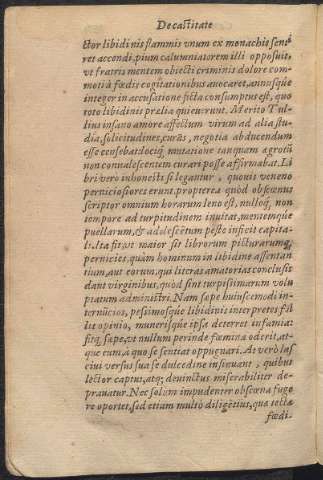 De castitate
ctor libidinis flammis vnum ex monachis sensé
ret accendi, pium calumniatorem illi opposuit,
vt fratris mentem obiecti criminis dolore com-
moti à fœdis cogitationibus auocaret, annusque
integer in accusatione ficta consumptus est, quo
toto libidinis prælia quieuerunt. Merito Tul-
lius insano amore affectum virum ad alia stu-
dia, solicitudines, curas, negotia abducendum
esse censebat locíq; mutatione tanquam ægrotũ
non conualescentem curari posse affirmabat. Li
bri verò inhonesti si legantur, quouis veneno
perniciosiores erunt. propterea quòd obscœnus
scriptor omnium horarum leno est, nulloq́; non
tempore ad turpitudinem inuitat, mentemque
puellarum, & adolescẽtum peste inficit capita-
li. Ita fit, vt maior sit librorum picturarumq́;
pernicies, quàm hominum in libidine assentan
tium, aut eorum, qui literas amatorias conclusis
dant virginibus, quòd sint turpissimarum volu
ptatum administri. Nam sæpe huiuscemodi in-
ternũcios, pessimosque libidinis interpretes fal
lit opinio, munerisque ipsa deterret infamia:
fitq́; sæpe, vt nullum perinde fœmina oderit, at-
que eum, a quo se sentiat oppugnari. At verò las
ciui versus sua se dulcedine insinuant, quibus
lector captus, atq; deuinctus miserabiliter de-
prauatur. Nec solum impudenter obscœna fuge
re oportet, sed etiam multò diligẽtius, quæ tectæ
fœdi-